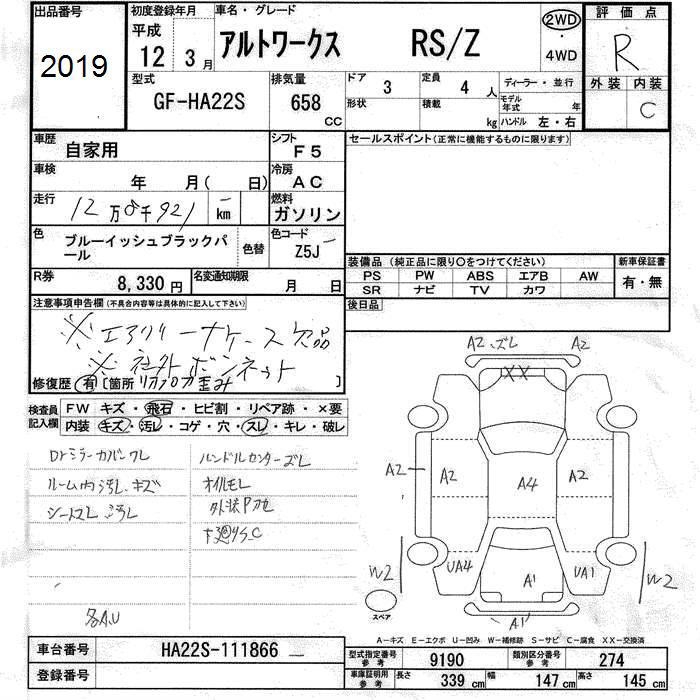 出品番号 初度登録年月 車名・グレード 評価点
2019 平成 12年 3月 アルトワークス RS/Z 2WD・4WD R
型式 排気量 ドア 定員 ディーラー・並行 外装 内装
GF-HA22S 658 CC 3 4人 モデル年式 年 C
形状 積載 kg ハンドル 左・右
車歴 自家用 シフト F5 セールスポイント(正常に機能するものに限ります)
車検 年 月( 日) 冷房 AC
走行 12万8千921 km 燃料 ガソリン
色 ブルーイッシュブラックパール 色替 色コード Z5J
装備品(純正品に限り○をつけてください) 新車保証書
PS PW ABS エアB AW 有・無
SR ナビ TV カワ
R券 8,330円 名変通知期限 月 日
後日品
注意事項申告欄(不具合内容等は具体的に記入して下さい)
※エアクリーナケース欠品
※社外ボンネット
修復歴 有 [箇所 歪み ]
検査員記入欄 FW キズ・飛石・ヒビ割・リペア跡・×要
内装 キズ・汚レ・コゲ・穴・スレ・キレ・破レ
Drミラーカバーワレ ハンドルセンターズレ
ルーム内汚レ、キズ オイルモレ
シートスレ 汚レ
各A,U
A2 ズレ A2
XX
A2 A2 A4 A2
W2 UA4 A1 UA1 W2
スペア A1
A-キズ E-エクボ U-凹み W-補修跡 S-サビ C-腐食 XX-交換済
車台番号 HA22S-111866
登録番号
型式指定番号 参考 9190 類別区分番号 参考 274
車庫証明用 参考 長さ 339cm 幅 147cm 高さ 145cm